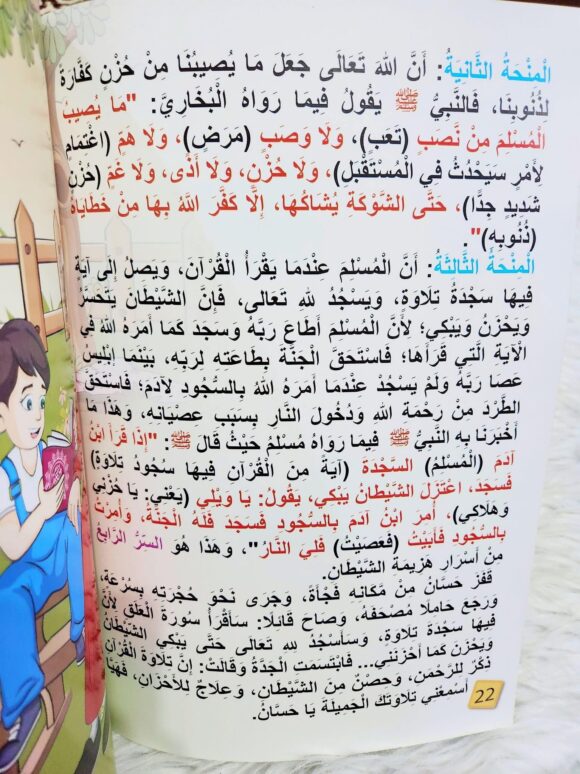 الْمِنْحَةُ الثَّانِيَةُ: أَنَّ اللهَ تَعَالَى جَعَلَ مَا يُصِيبُنَا مِنْ حُزْنٍ كَفَّارَةً
لِذُنُوبِنَا، فَالنَّبِيُّ ﷺ يَقُولُ فِيمَا رَوَاهُ الْبُخَارِيُّ: "مَا يُصِيبُ
الْمُسْلِمَ مِنْ نَصَبٍ (تَعَبٍ)، وَلَا وَصَبٍ (مَرَضٍ)، وَلَا هَمٍّ (اغْتِمَامٍ
لِأَمْرٍ سَيَحْدُثُ فِي الْمُسْتَقْبَلِ)، وَلَا حُزْنٍ، وَلَا أَذًى، وَلَا غَمٍّ (حُزْنٍ
شَدِيدٍ جِدًّا)، حَتَّى الشَّوْكَةِ يُشَاكُهَا، إِلَّا كَفَّرَ اللَّهُ بِهَا مِنْ خَطَايَاهُ
(ذُنُوبِهِ)".
الْمِنْحَةُ الثَّالِثَةُ: أَنَّ الْمُسْلِمَ عِنْدَمَا يَقْرَأُ الْقُرْآنَ، وَيَصِلُ إِلَى آيَةٍ
فِيهَا سَجْدَةُ تِلَاوَةٍ، وَيَسْجُدُ للهِ تَعَالَى، فَإِنَّ الشَّيْطَانَ يَتَحَسَّرُ
وَيَحْزَنُ وَيَبْكِي؛ لِأَنَّ الْمُسْلِمَ أَطَاعَ رَبَّهُ وَسَجَدَ كَمَا أَمَرَهُ اللهُ فِي
الْآيَةِ الَّتِي قَرَأَهَا؛ فَاسْتَحَقَّ الْجَنَّةَ بِطَاعَتِهِ لِرَبِّهِ، بَيْنَمَا إِبْلِيسُ
عَصَا رَبَّهُ وَلَمْ يَسْجُدْ عِنْدَمَا أَمَرَهُ اللهُ بِالسُّجُودِ لِآدَمَ؛ فَاسْتَحَقَّ
الطَّرْدَ مِنْ رَحْمَةِ اللهِ وَدُخُولَ النَّارِ بِسَبَبِ عِصْيَانِهِ، وَهَذَا مَا
أَخْبَرَنَا بِهِ النَّبِيُّ ﷺ فِيمَا رَوَاهُ مُسْلِمٌ حَيْثُ قَالَ ﷺ: "إِذَا قَرَأَ ابْنُ
آدَمَ (الْمُسْلِمُ) السَّجْدَةَ (آيَةً مِنَ الْقُرْآنِ فِيهَا سُجُودُ تِلَاوَةٍ)
فَسَجَدَ، اعْتَزَلَ الشَّيْطَانُ يَبْكِي، يَقُولُ: يَا وَيْلِي (يَعْنِي: يَا حُزْنِي
وَهَلَاكِي)، أُمِرَ ابْنُ آدَمَ بِالسُّجُودِ فَسَجَدَ فَلَهُ الْجَنَّةُ، وَأُمِرْتُ
بِالسُّجُودِ فَأَبَيْتُ (فَعَصَيْتُ) فَلِيَ النَّارُ"، وَهَذَا هُوَ السِّرُّ الرَّابِعُ
مِنْ أَسْرَارِ هَزِيمَةِ الشَّيْطَانِ.
قَفَزَ حَسَّانُ مِنْ مَكَانِهِ فَجْأَةً، وَجَرَى نَحْوَ حُجْرَتِهِ بِسُرْعَةٍ،
وَرَجَعَ حَامِلًا مُصْحَفَهُ، وَصَاحَ قَائِلًا: سَأَقْرَأُ سُورَةَ الْعَلَقِ لِأَنَّ
فِيهَا سَجْدَةَ تِلَاوَةٍ، وَسَأَسْجُدُ للهِ تَعَالَى حَتَّى يَبْكِيَ الشَّيْطَانُ
وَيَحْزَنَ كَمَا أَحْزَنَنِي... فَابْتَسَمَتِ الْجَدَّةُ وَقَالَتْ: إِنَّ تِلَاوَةَ الْقُرْآنِ
ذِكْرٌ لِلرَّحْمَنِ، وَحِصْنٌ مِنَ الشَّيْطَانِ، وَعِلَاجٌ لِلْأَحْزَانِ، فَهَيَّا
أَسْمِعْنِي تِلَاوَتَكَ الْجَمِيلَةَ يَا حَسَّانُ.
22